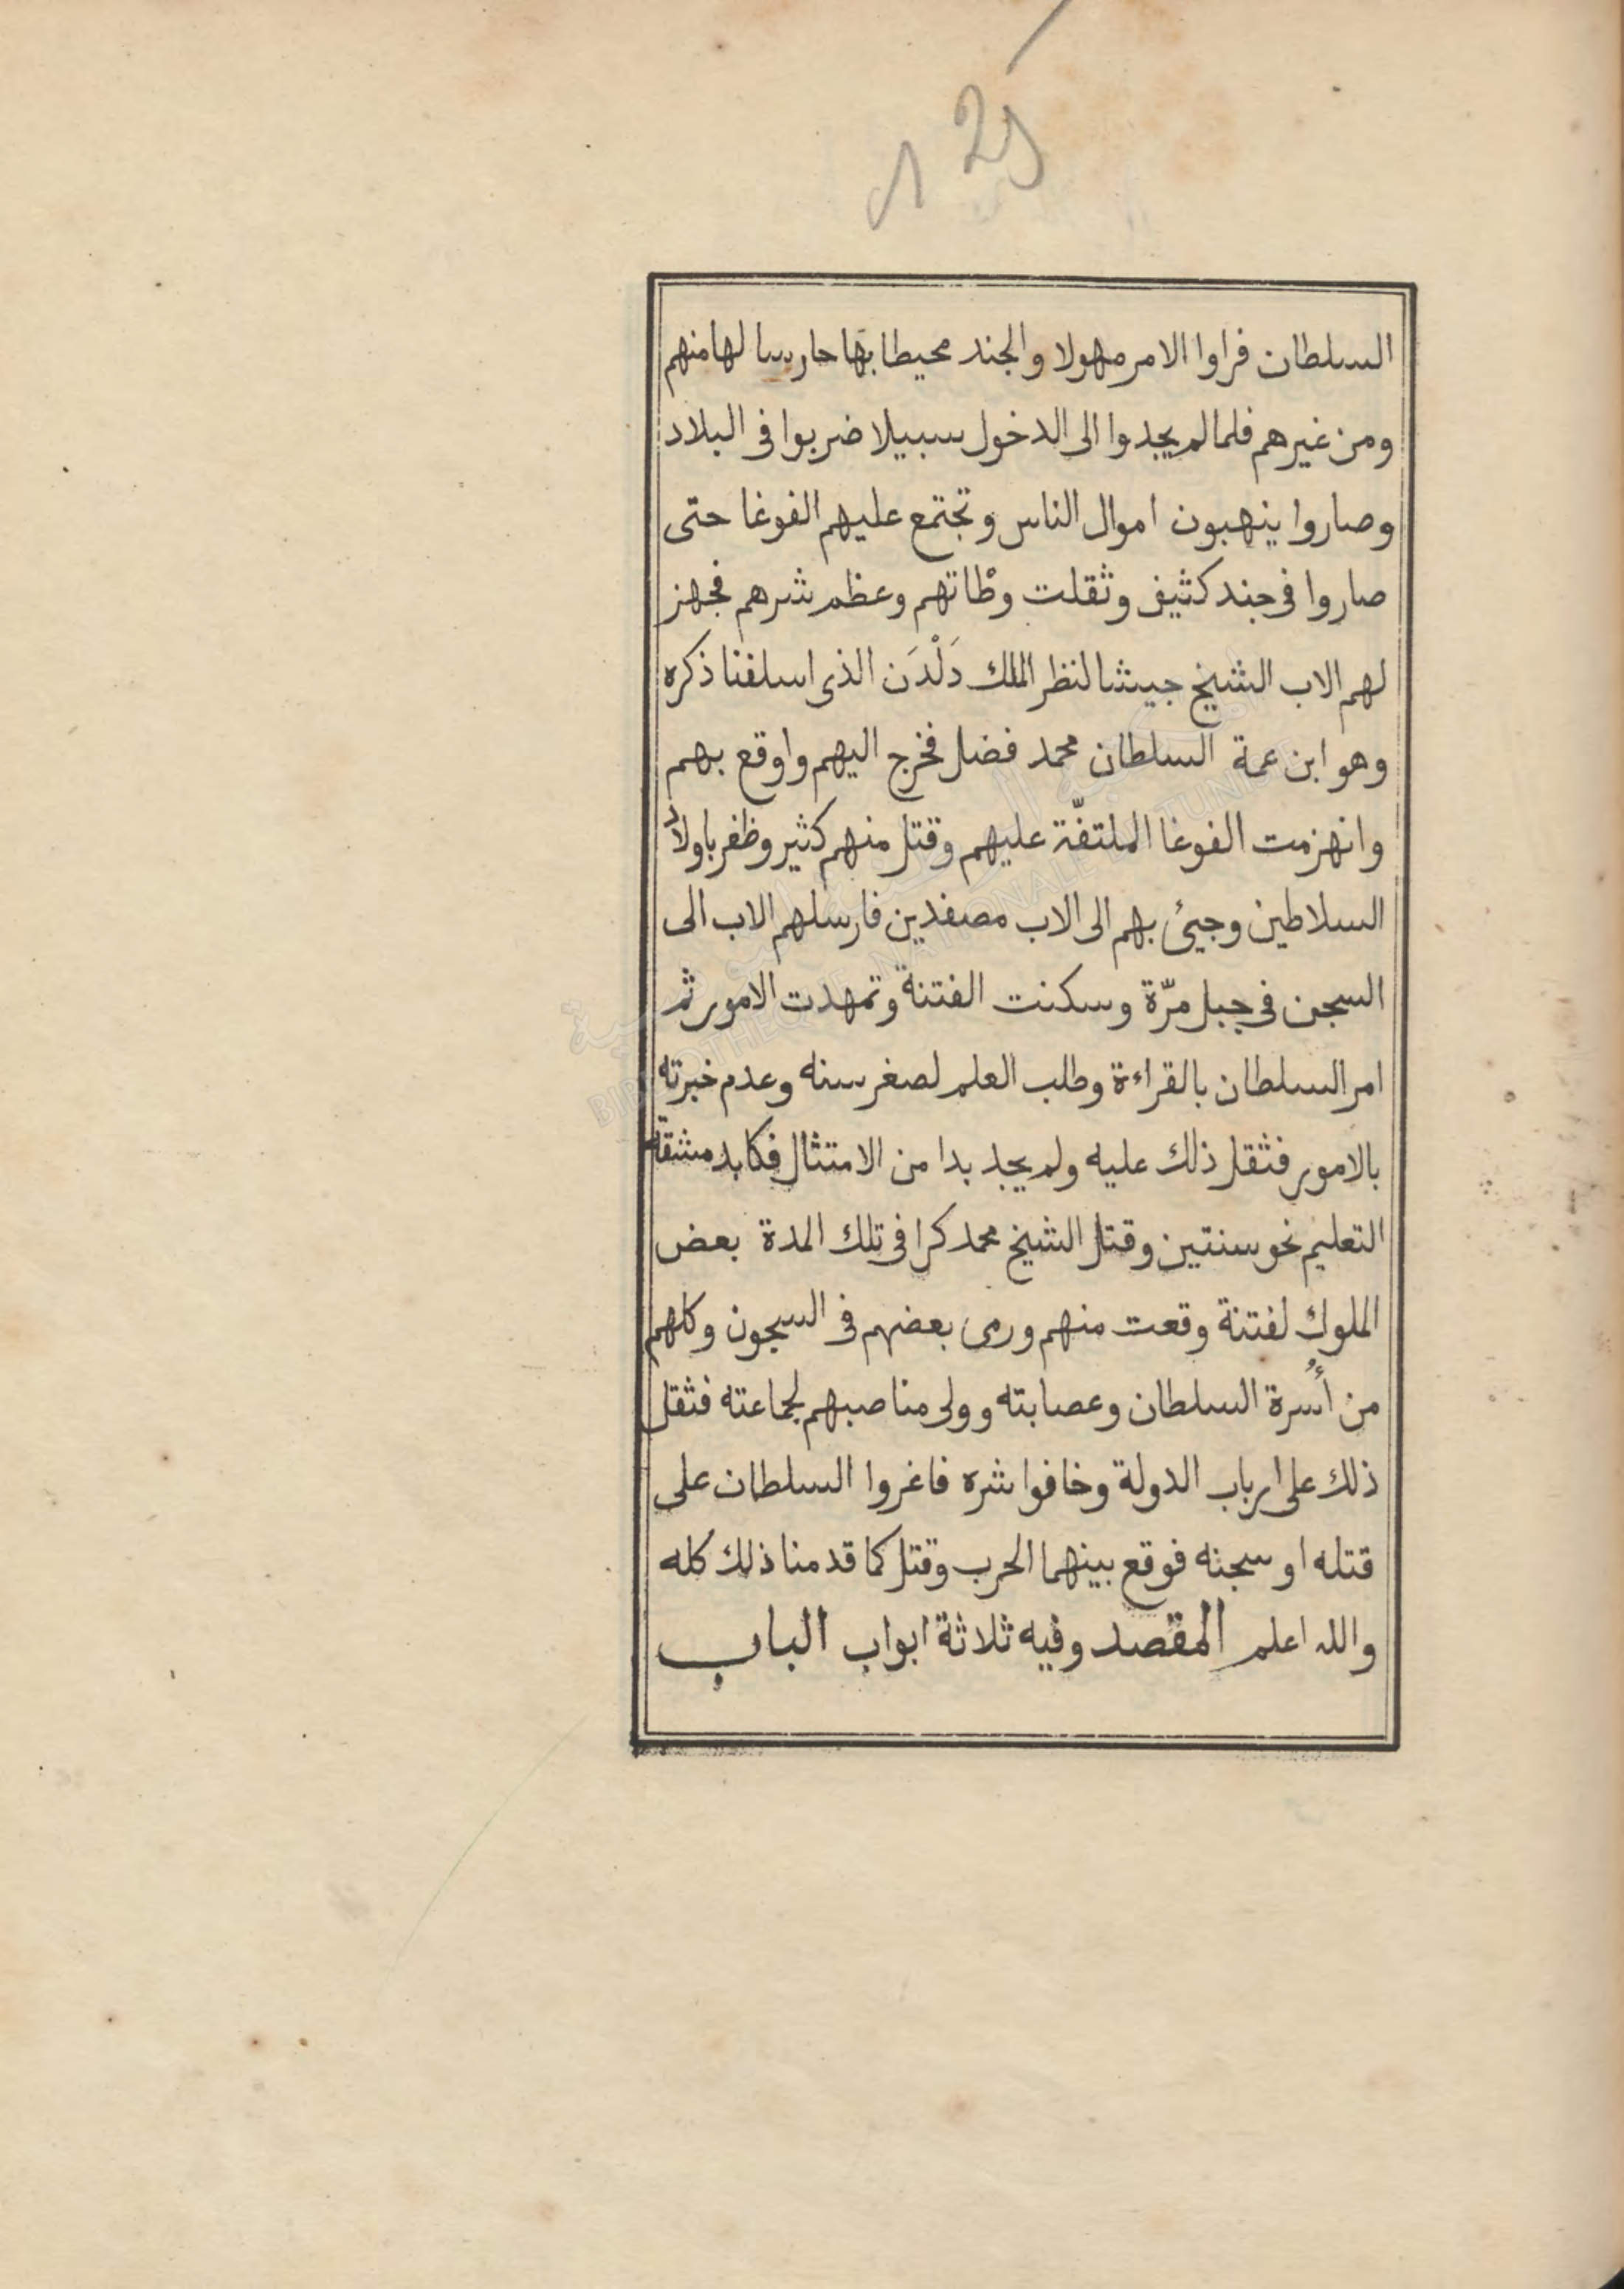 125
السلطان فراوا الامر مهولا والجند محيطا بها حارسا لها منهم
ومن غيرهم فلما لم يجدوا الى الدخول سبيلا ضربوا فى البلاد
وصاروا ينهبون اموال الناس وتجتمع عليهم الفوغا حتى
صاروا فى جند كثيف وثقلت وطْاتهم وعظم شرهم فجهز
لهم الاب الشيخ جيشا لنظر الملك دَلْدَن الذى اسلفنا ذكره
وهو ابن عمة السلطان محمد فضل فخرج اليهم واوقع بهم
وانهزمت الفوغا الملتفّة عليهم وقتل منهم كثير وظفر باولاد
السلاطين وجيئ بهم الى الاب مصفدين فارسلهم الاب الى
السجن فى جبل مرّة وسكنت الفتنة وتمهدت الامور ثم
امر السلطان بالقراءة وطلب العلم لصغر سنه وعدم خبرته
بالامور فثقل ذلك عليه ولم يجد بدا من الامتثال فكابد مشقة
التعليم نحو سنتين وقتل الشيخ محمد كرا فى تلك المدة بعض
الملوك لفتنة وقعت منهم ورمى بعضهم فى السجون وكلهم
من أُسرة السلطان وعصابته وولى مناصبهم لجماعته فثقل
ذلك على ارباب الدولة وخافوا شره فاغروا السلطان على
قتله او سجنه فوقع بينهما الحرب وقتل كما قدمنا ذلك كله
والله اعلم المقصد وفيه ثلاثة ابواب الباب